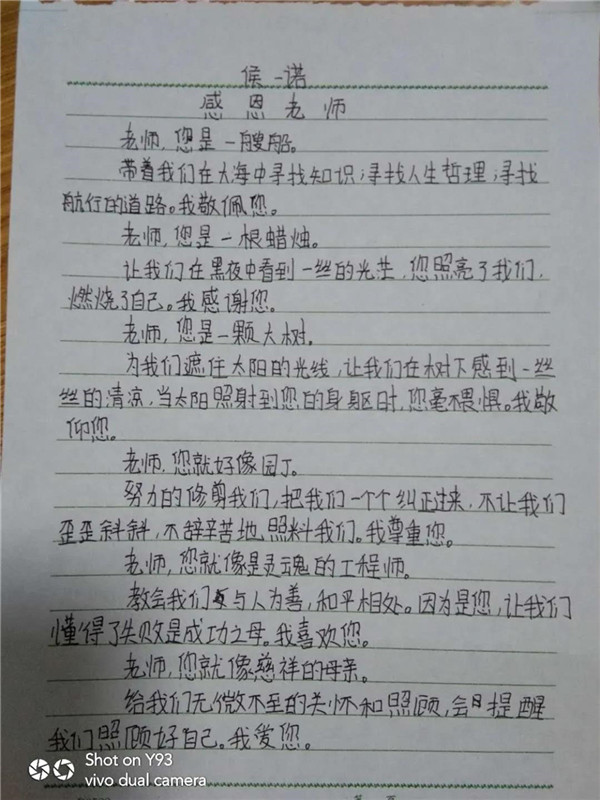 侯一诺
感恩老师
老师,您是一艘船。
带着我们在大海中寻找知识;寻找人生哲理;寻找
航行的道路。我敬佩您。
老师,您是一根蜡烛。
让我们在黑夜中看到一丝的光芒,您照亮了我们,
燃烧了自己。我感谢您。
老师,您是一颗大树。
为我们遮住太阳的光线,让我们在树下感到一丝
丝的清凉,当太阳照射到您的身躯时,您毫不畏惧。我敬
仰您。
老师,您就好像园丁。
努力的修剪我们,把我们一个个纠正过来,不让我们
歪歪斜斜,不辞辛苦地照料我们。我尊重您。
老师,您就像是灵魂的工程师。
教会我们与人为善,和平相处。因为是您,让我们
懂得了失败是成功之母。我喜欢您。
老师,您就像慈祥的母亲。
给我们无微不至的关怀和照顾,会提醒
我们照顾好自己。我爱您。
Shot on Y93
vivo dual camera